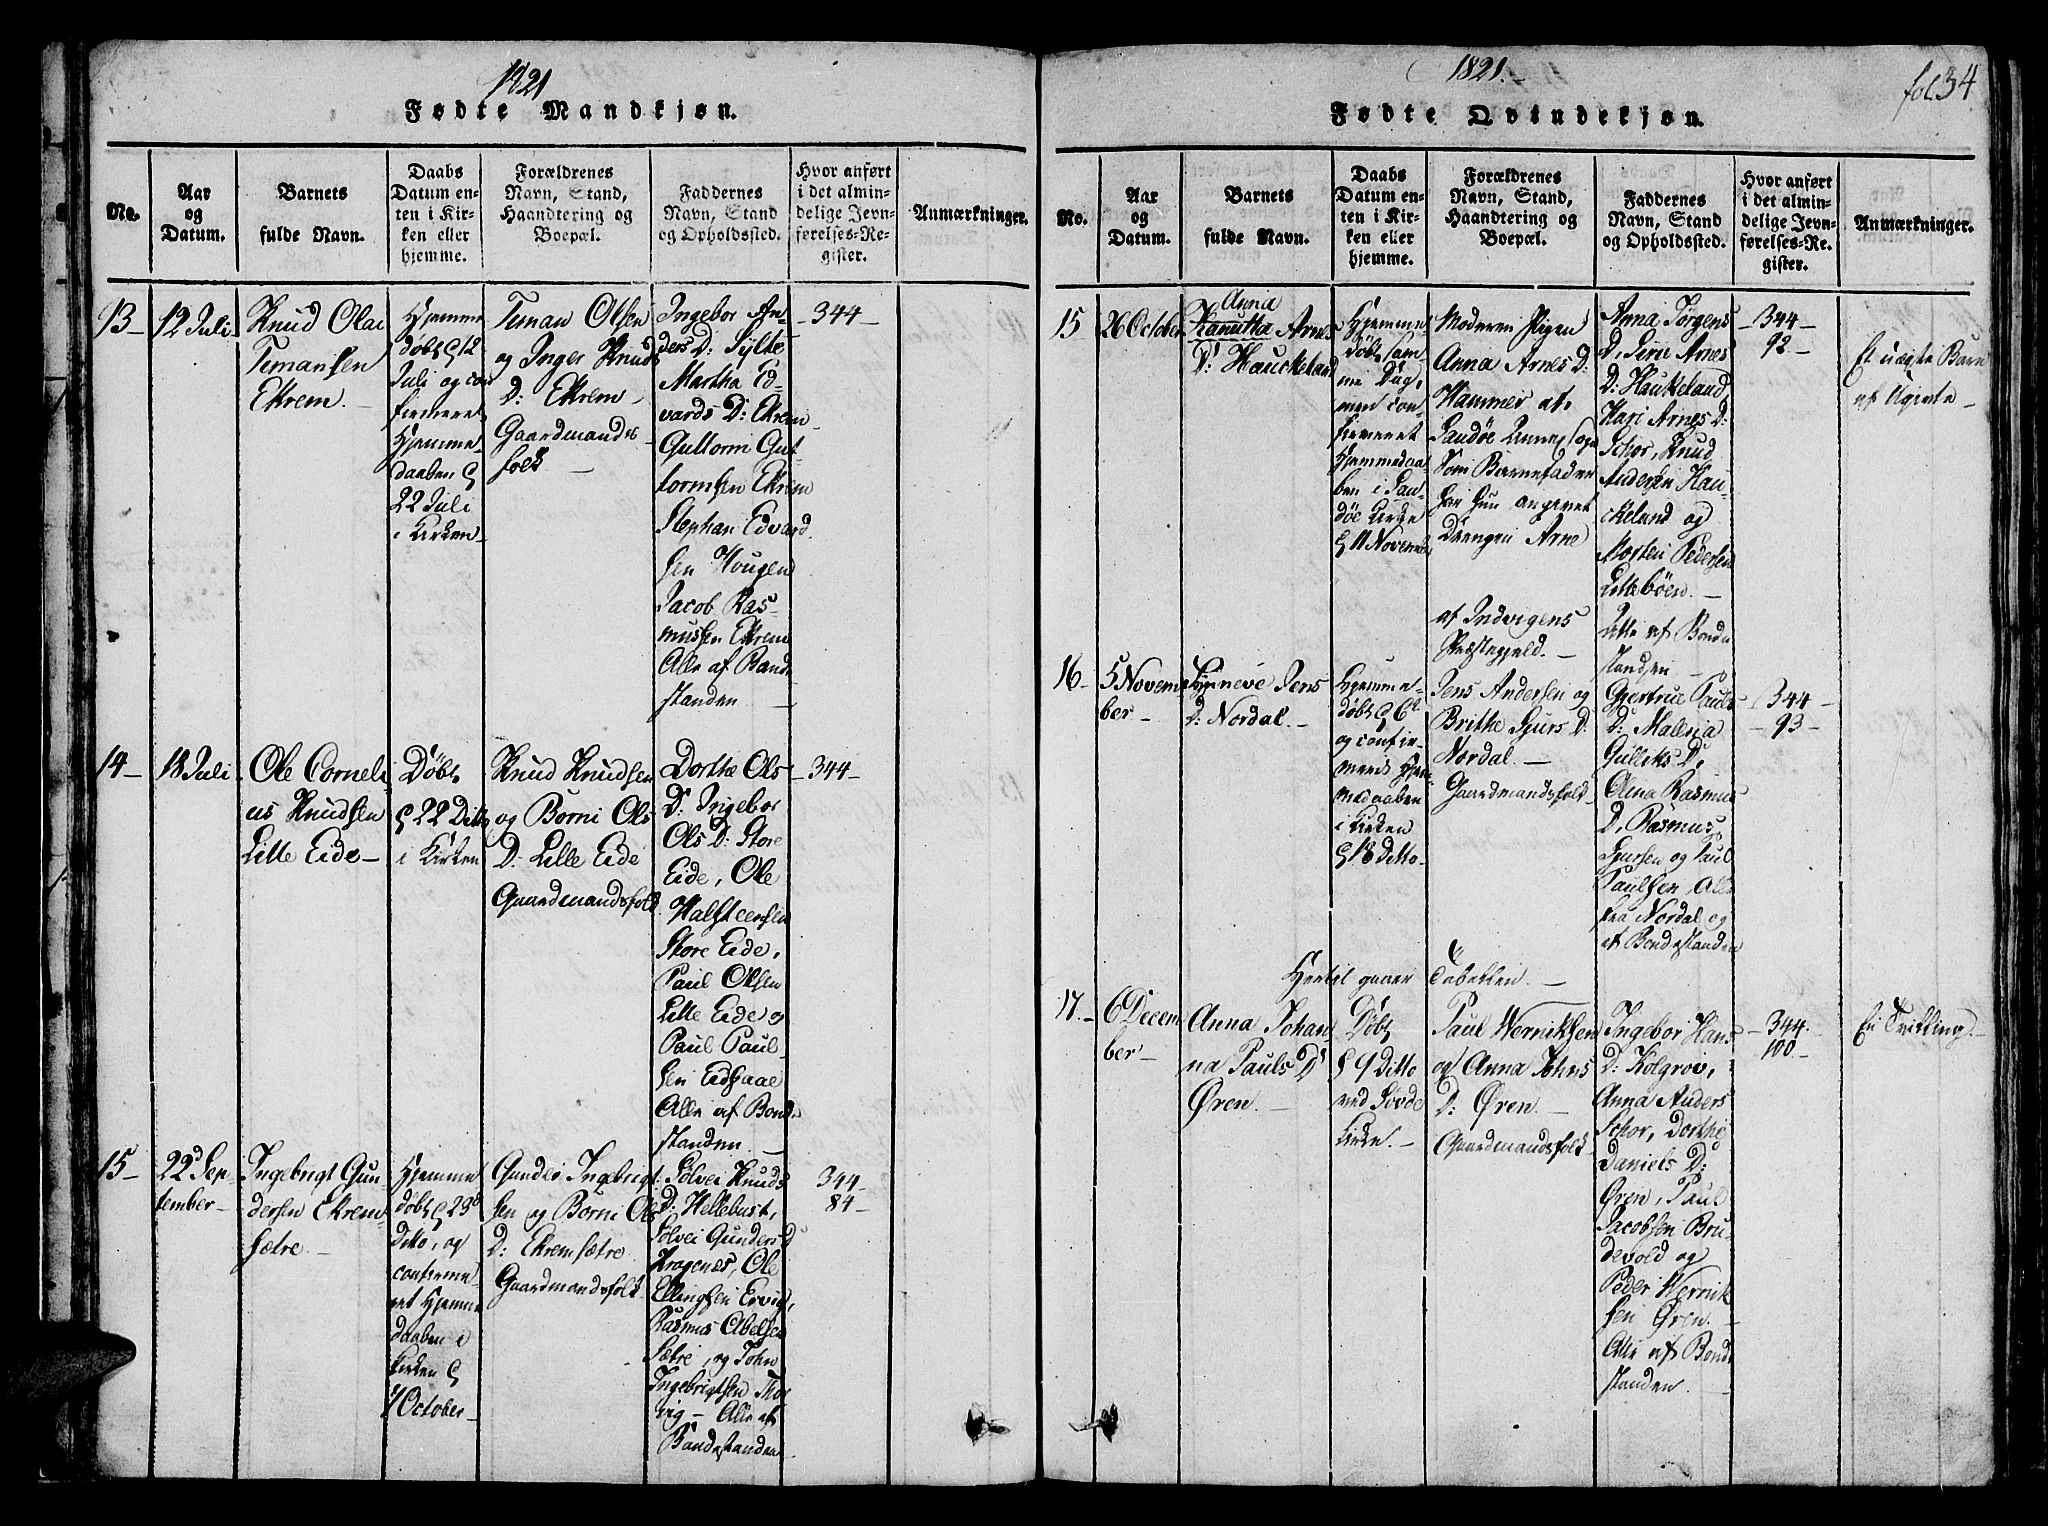 1821
Fødte Mandkjøn.
No.
Aar
og
Datum.
Barnets
fulde Navn.
Daabs
Datum en-
ten i Kir-
ken eller
hjemme.
Forældrenes
Navn, Stand,
Haandtering og
Boepæl.
Faddernes
Navn, Stand
og Opholdssted.
Hvor anført
i det almin-
delige Jevn-
førelses-Re-
gister.
Anmærkninger.
13
12 Juli
Knud Olai
Temansen
Ekrem.
Hjemme
døbt 12
Juli og con
firmeret
Hjemme
daaben
22 Juli
i Kirken
Teman Olsen
og Inger Knuds
D: Ekrem
Gaardmands
folk
Ingebor An
ders D: Sylte
Martha Ed-
vards D: Ekrem
Guttorm Gut-
tormsen Ekrem
Stephan Edvard
sen Hougen
Jacob Ras-
mussen Ekrem
Alle af Bonde
standen
344
14
18 Juli
Ole Corneli
us Knudsen
Lille Eide
Døbt
22 Ditto
i Kirken
Knud Knudsen
og Borni Ols
D: Lille Eide
Gaardmandsfolk
Dorthe Ols
D: Ingebor
Ols D: Store
Eide, Ole
Halsteensen
Store Eide,
Paul Olsen
Lille Eide og
Paul Paul-
sen Eidsaae
Alle af Bonde
standen
344
15
22 Sep-
tember
Ingebrigt Gun
dersen Ekrem
sætre
Hjemme
døbt 23
Ditto, og
confirme-
ret Hjemme
daaben i
Kirken
7 October
Gunder Ingebrigt
sen og Borni Ols
D: Ekremsætre
Gaardmandsfolk
Solvei Knuds
D: Hellebust,
Solvei Gunders D
Kragenes, Ole
Ellingsen Ervig,
Rasmus Abelsen
Sætre, og John
Ingebrigtsen
Alle af
Bondestanden
344
84
1821.
fol 34
Fødte Qvindekjøn.
No.
Aar
og
Datum.
Barnets
fulde Navn.
Daabs
Datum en-
ten i Kir-
ken eller
hjemme.
Forældrenes
Navn, Stand,
Haandtering og
Boepæl.
Faddernes
Navn, Stand
og Opholdssted.
Hvor anført
i det almin-
delige Jevn-
førelses-Re-
gister.
Anmærkninger.
15
26 October
Anna
Kanutha Arnes
D: Hauckeland
Hjemme
døbt sam
me Dag,
men con
firmeret
Hjemmedaa-
ben i San-
döe Kirke
11 November
Moderen Pigen
Anna Arnes D:
Hammer af
Sandøe
Som Barnefader
har hun angivet
Drengen Arne
af Indvigens
Præstegjeld.
Anna Jørgens
D, Siri Arnes
D: Haukeland,
Kari Arnes D:
Schor, Knud
Andersen Hau-
ckeland og
Morten Pedersen
Littebøen.
Alle af Bonde
standen
344
92
Et uægte Barn
af Ugivte
16
5 Novem
ber
Synneve Jens
D: Nordal.
Hjemme-
døbt 6
og confir-
meret Hjem
medaaben
i Kirken
18 Ditto
Jens Andersen og
Brithe Sjurs D:
Nordal
Gaardmandsfolk
Gjertrue Pauls
D: Malena
Gulliks D,
Anna Rasmus
D, Rasmus
Sjursen og Paul
Paulsen, Alle
fra Nordal og
af Bondestanden
344
93
Hertil gaaer Tabellen.
17
6 Decem
ber
Anna Johan
na Pauls D
Øren
Døbt
9 Ditto
ved Søvde
Kirke.
Paul Werniksen
og Anna Johns
D: Øren
Gaardmandsfolk
Ingebor Hans
D: Kolgrov,
Anna Anders
Schor, Dorthe
Daniels D:
Øren, Paul
Jacobsen Bru
devold og
Peder Wernik
sen Øren.
Alle af Bonde
standen.
344.
100
En Tvilling